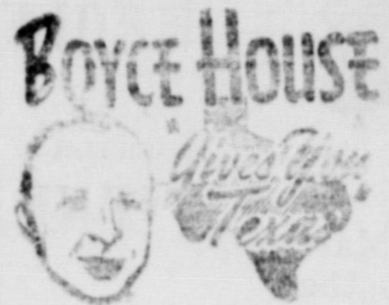 BOYCE HOUSE
Gives You
Texas